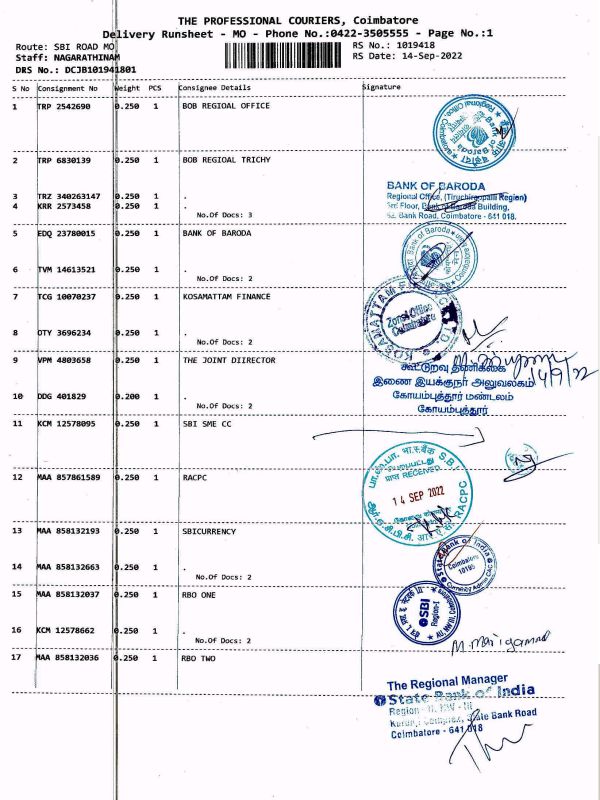 THE PROFESSIONAL COURIERS, Coimbatore
Delivery Runsheet - MO - Phone No.:0422-3505555 - Page No.:1
Route: SBI ROAD MO
RS No.: 1019418
Staff: NAGARATHINAM
RS Date: 14-Sep-2022
DRS No.: DCJB101941801
S No Consignment No Weight PCS Consignee Details Signature
1 TRP 2542690 0.250 1 BOB REGIOAL OFFICE
2 TRP 6830139 0.250 1 BOB REGIOAL TRICHY
BANK OF BARODA
Regional Office, (Tiruchirappalli Region)
3 TRZ 340263147 0.250 1 .
4 KRR 2573458 0.250 1 .
Floor, Bank of Baroda Building,
Bank Road, Coimbatore - 641 018.
No.Of Docs: 3
5 EDQ 23780015 0.250 1 BANK OF BARODA
Bank of Baroda
6 TVM 14613521 0.250 1 .
No.Of Docs: 2
7 TCG 10070237 0.250 1 KOSAMATTAM FINANCE
KOSAMATTAM
Zonal Office
Coimbatore
8 OTY 3696234 0.250 1 .
No.Of Docs: 2
9 VPM 4803658 0.250 1 THE JOINT DIIRECTOR
கூட்டுறவு தணிக்கை
14/9/22
இணை இயக்குநர் அலுவலகம்
10 DDG 401829 0.200 1 .
கோயம்புத்தூர் மண்டலம்
No.Of Docs: 2
கோயம்புத்தூர்
11 KCM 12578095 0.250 1 SBI SME CC
12 MAA 857861589 0.250 1 RACPC
RECEIVED
14 SEP 2022
RACPC
13 MAA 858132193 0.250 1 SBICURRENCY
State Bank of India
Coimbatore
14 MAA 858132663 0.250 1 .
No.Of Docs: 2
15 MAA 858132037 0.250 1 RBO ONE
SBI
Region-I
16 KCM 12578662 0.250 1 .
No.Of Docs: 2
17 MAA 858132036 0.250 1 RBO TWO
The Regional Manager
State Bank of India
Region - II,
Complex, State Bank Road
Coimbatore - 641 018